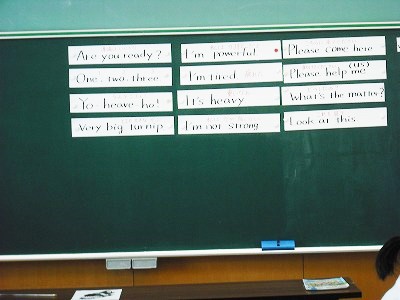 Are you ready?
One, two, three
Yo heave ho!
Very big turnip
I'm powerful
I'm tired
It's heavy
I'm not strong
Please come here
Please help me (us)
What's the matter?
Look at this